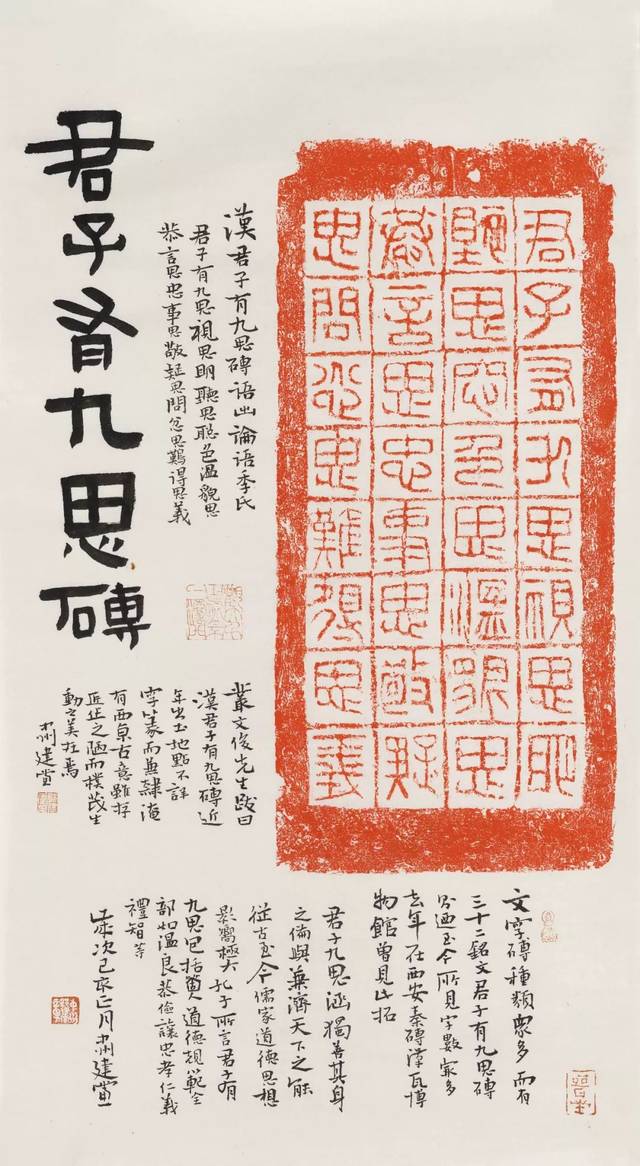 君子有九思磚
君子有九思視思明
聽思聰色思溫貌思
恭言思忠事思敬疑
思問忿思難得思義
漢君子有九思磚語出論語季氏
君子有九思視思明聽思聰色溫貌思
恭言思忠事思敬疑思問忿思難得思義
叢文俊先生跋曰
漢君子有九思磚近
年出土地點不詳
字篆而無隸淹
有西京古意雖存
匠作之陋而樸茂生
動之美在焉
肃建黨
文字磚種類眾多而有
三十二銘文君子有九思磚
至今所見字數最多
去年在西安秦磚漢瓦博
物館曾見此拓
君子九思涵獨善其身
之倫與兼濟天下之能
從古至今儒家道德思想
影響極大孔子所言君子有
九思包括道德規範全
部如溫良恭儉讓忠孝仁義
禮智等
歲次己亥正月肃建黨